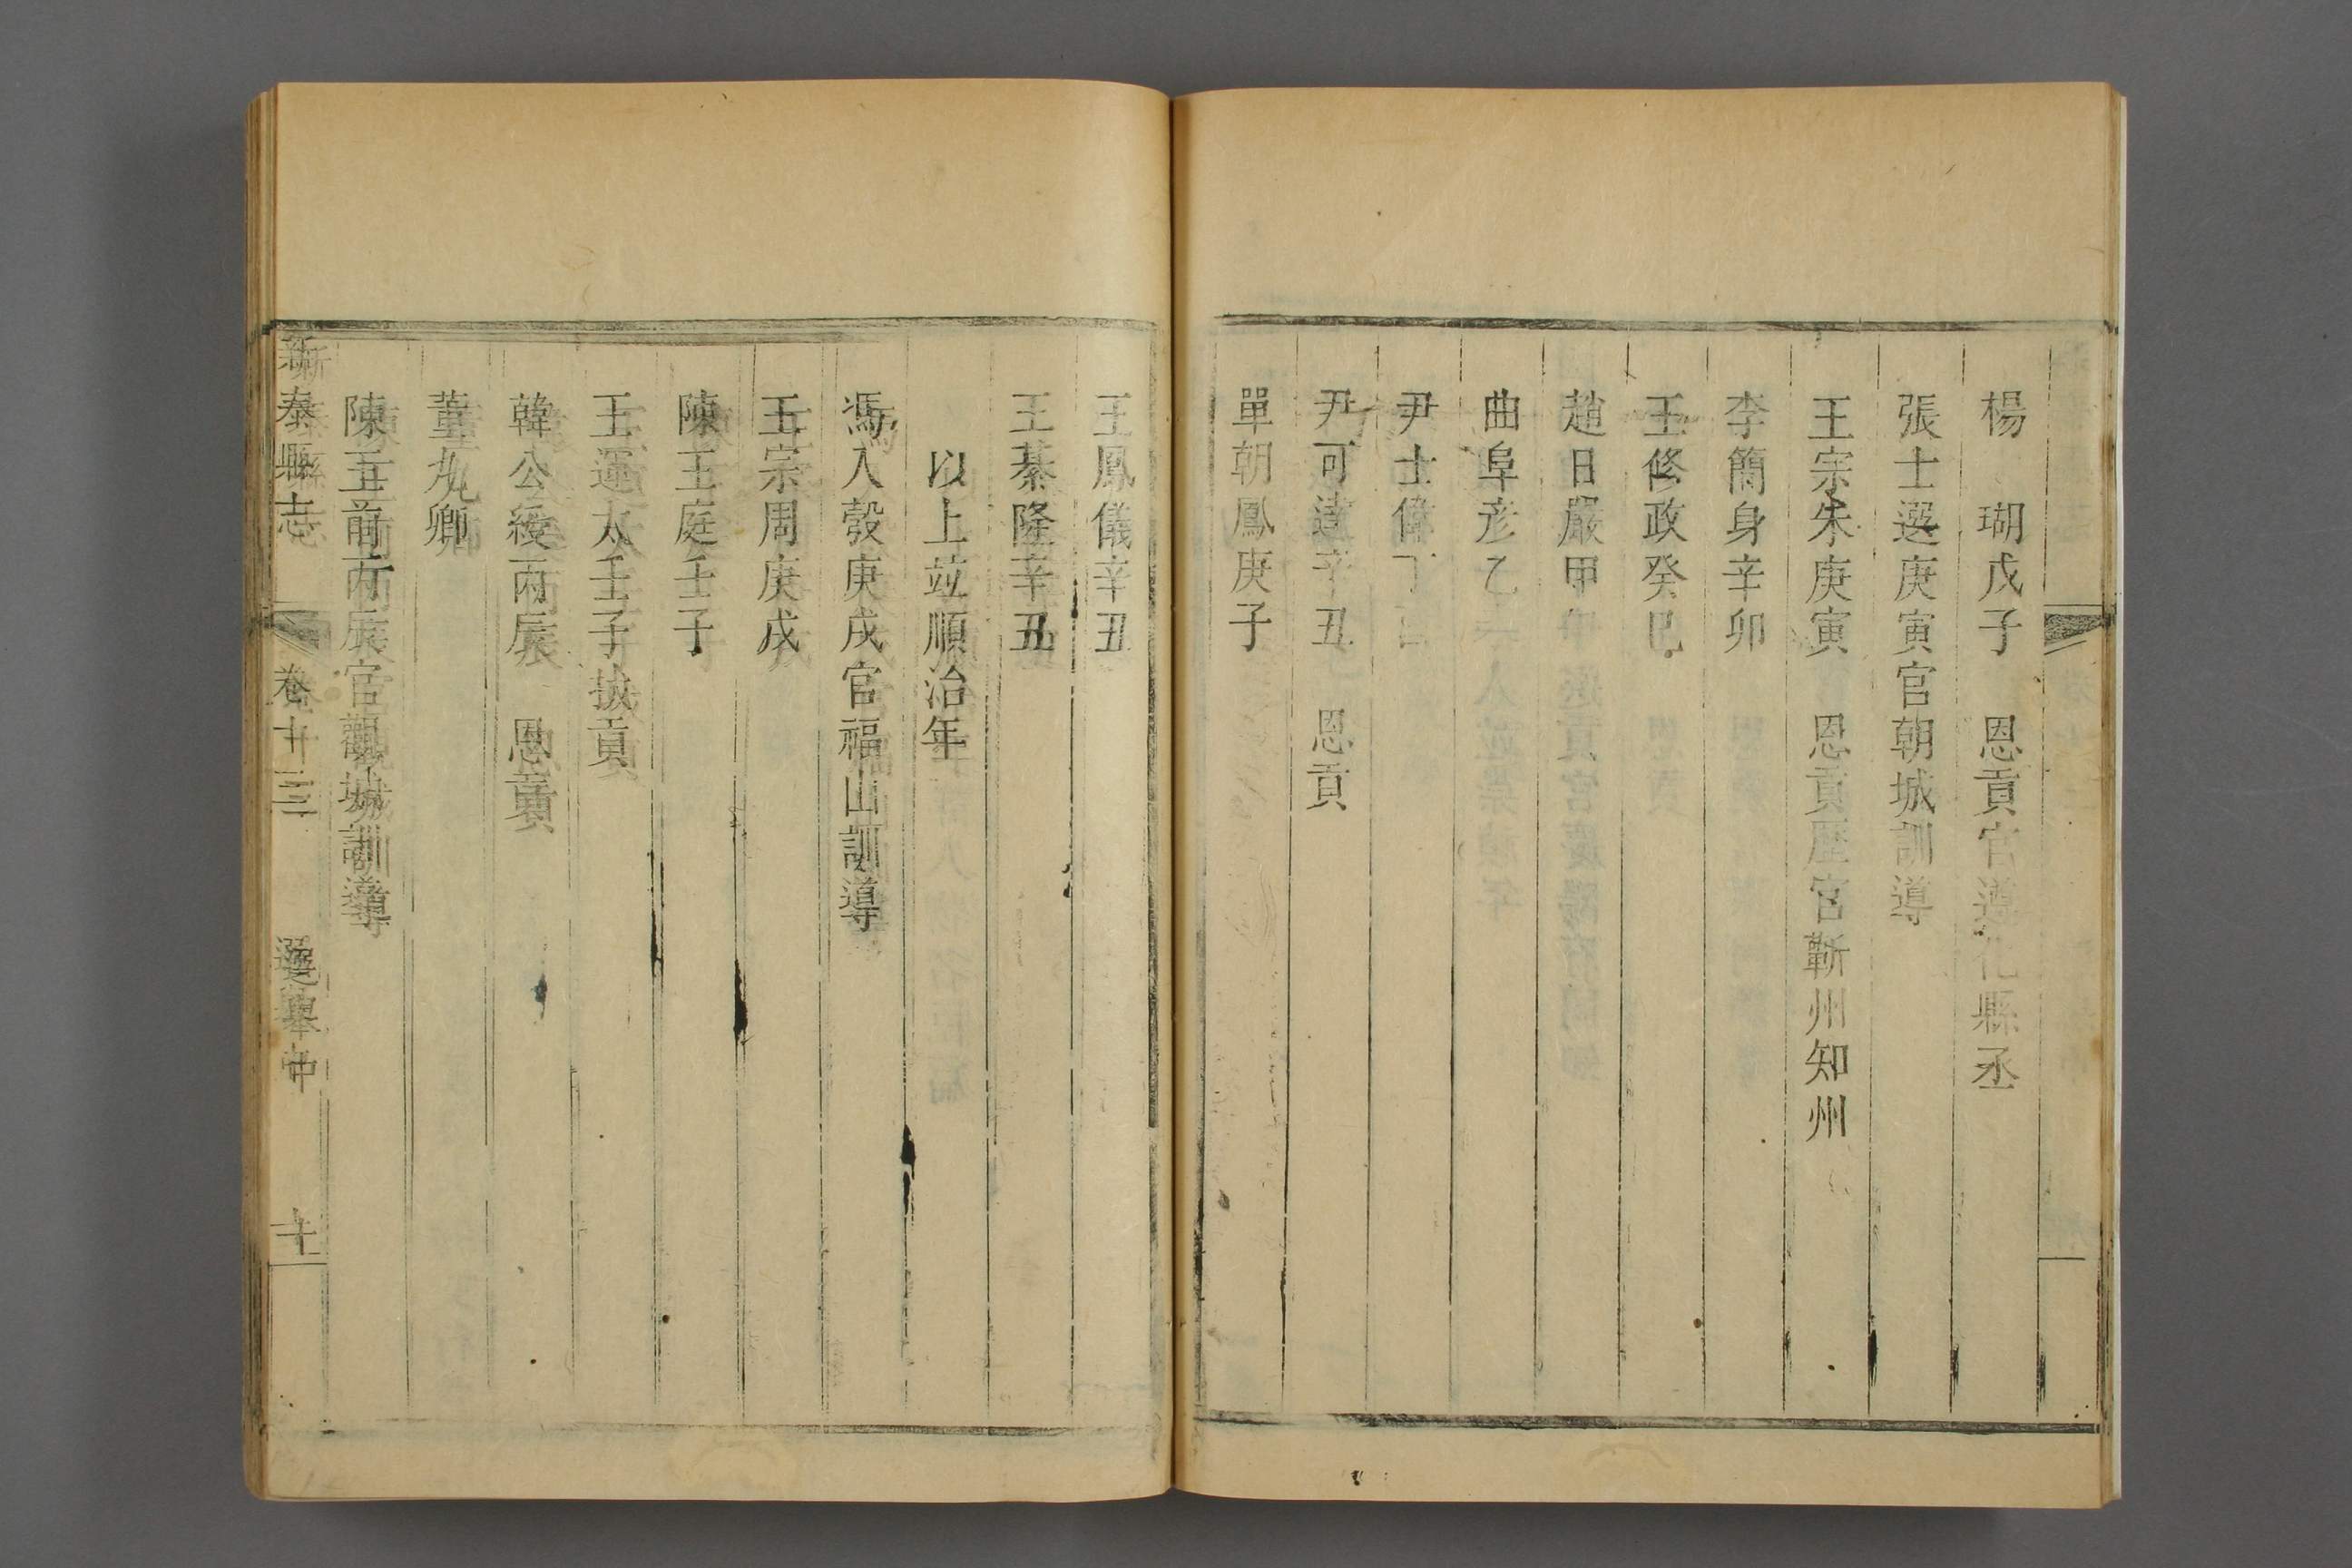 楊　瑚戊子　恩貢官遵化縣丞
張士選庚寅官朝城訓導
王宗朱庚寅　恩貢歷官蘄州知州
李簡身辛卯
王修政癸巳
趙日嚴甲
曲阜彥乙
尹士偉丁
尹可達辛丑　恩貢
單朝鳳庚子
王鳳儀辛丑
王綦隆辛丑
以上竝順治年
馮入彀庚戌官福山訓導
王宗周庚戌
陳王庭壬子
王運太壬子拔貢
韓公綬丙辰　恩貢
董九卿
陳五前丙辰官觀城訓導
新泰縣志　卷十三　選舉中　十